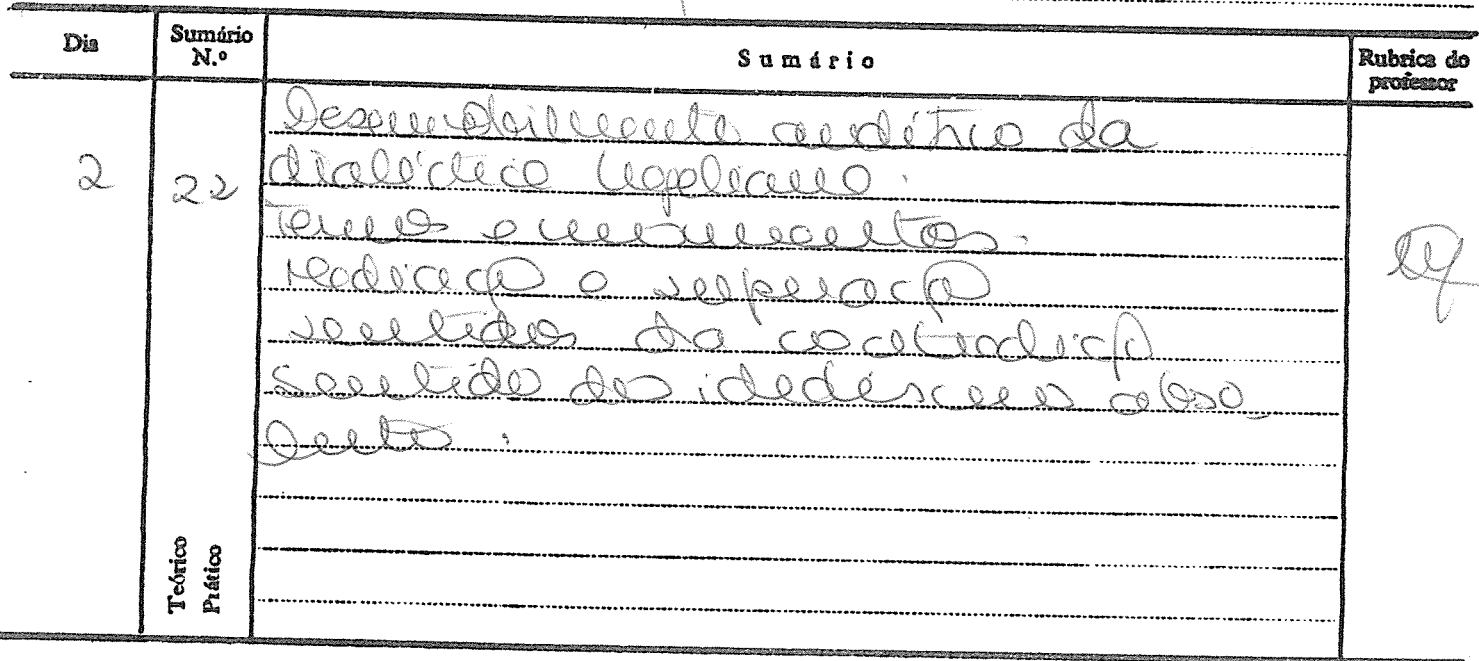 Dia
Sumário N.º
Sumário
Rubrica do professor
2
22
Desenvolvimento analítico da
dialéctica hegeliana.
Termos e movimentos.
Mediação e superação
sentidos da contradição
Sentido do idealismo abso
luto.
Teórico
Prático